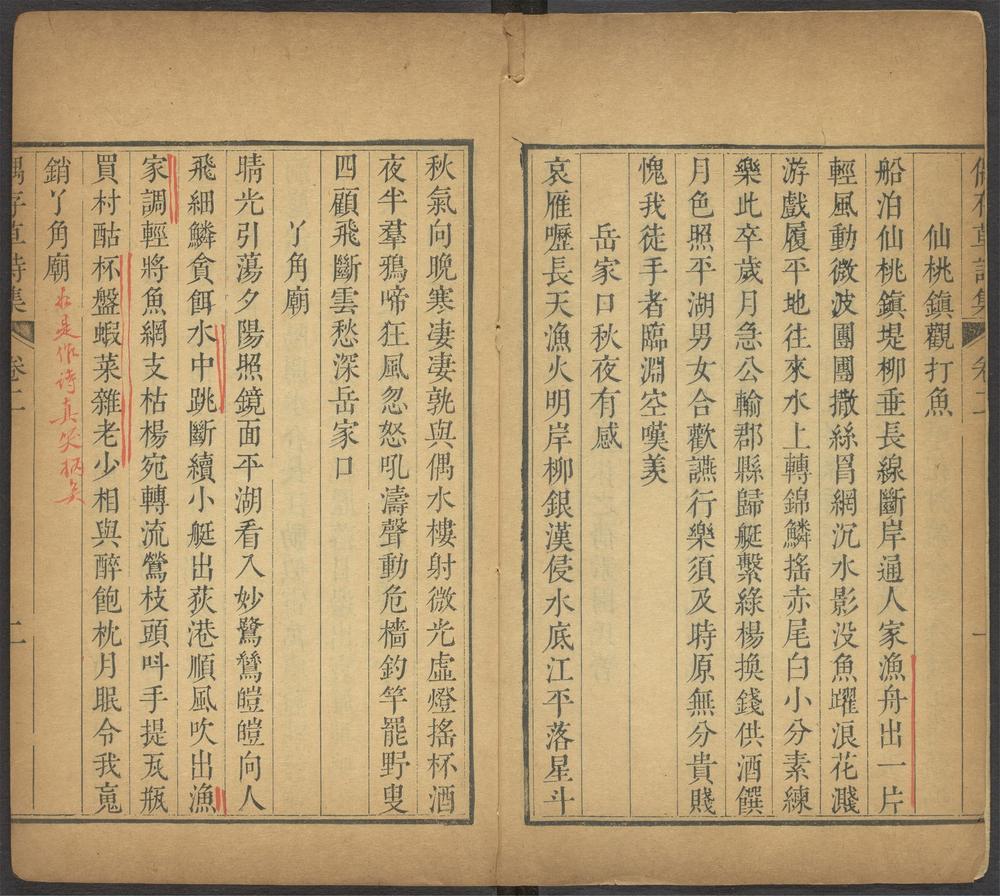 偶存草詩集 卷二 一
仙桃鎮觀打魚
船泊仙桃鎮堤柳垂長線斷岸通人家漁舟出一片
輕風動微波團團撒絲罥網沉水影没魚躍浪花濺
游戲履平地往來水上轉錦鱗搖赤尾白小分素練
樂此卒歲月急公輸郡縣歸艇繫綠楊換錢供酒饌
月色照平湖男女合歡讌行樂須及時原無分貴賤
愧我徒手者臨淵空嘆羨
岳家口秋夜有感
哀雁嚦長天漁火明岸柳銀漢侵水底江平落星斗
秋氣向晚寒凄凄孰與偶水樓射微光虛燈搖杯酒
夜半羣鴉啼狂風忽怒吼濤聲動危檣釣竿罷野叟
四顧飛斷雲愁深岳家口
丫角廟
晴光引蕩夕陽照鏡面平湖看入妙鷺鷥皚皚向人
飛細鱗貪餌水中跳斷續小艇出荻港順風吹出漁
家調輕將魚網支枯楊宛轉流鶯枝頭呌手提瓦瓶
買村酤杯盤蝦菜雜老少相與醉飽枕月眠令我䰟
銷丫角廟
如是作詩真笑柄矣
偶存草詩集 卷二 二